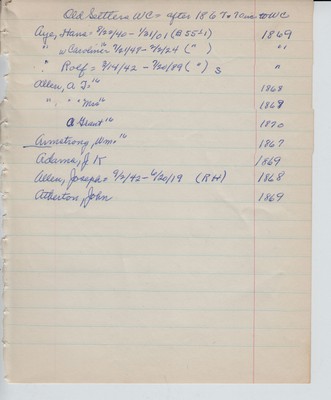 Old Settlers WC = after 1867 + came to WC
Aye, Hans = 9/22/40 - 1/21/01 (B 55 L1) 1869
" w Caroline 16 7/21/48 - 7/2/24 (") "
" Rolf = 9/14/42 - 7/20/89 (") S "
Allen, A. T. 16 1868
" " " Mrs 16 1868
a Grant 16 1870
Armstrong, Wm. 16 1867
Adams, J. K 1869
Allen, Joseph = 9/2/42 - 6/20/19 (RH) 1868
Atherton, John 1869